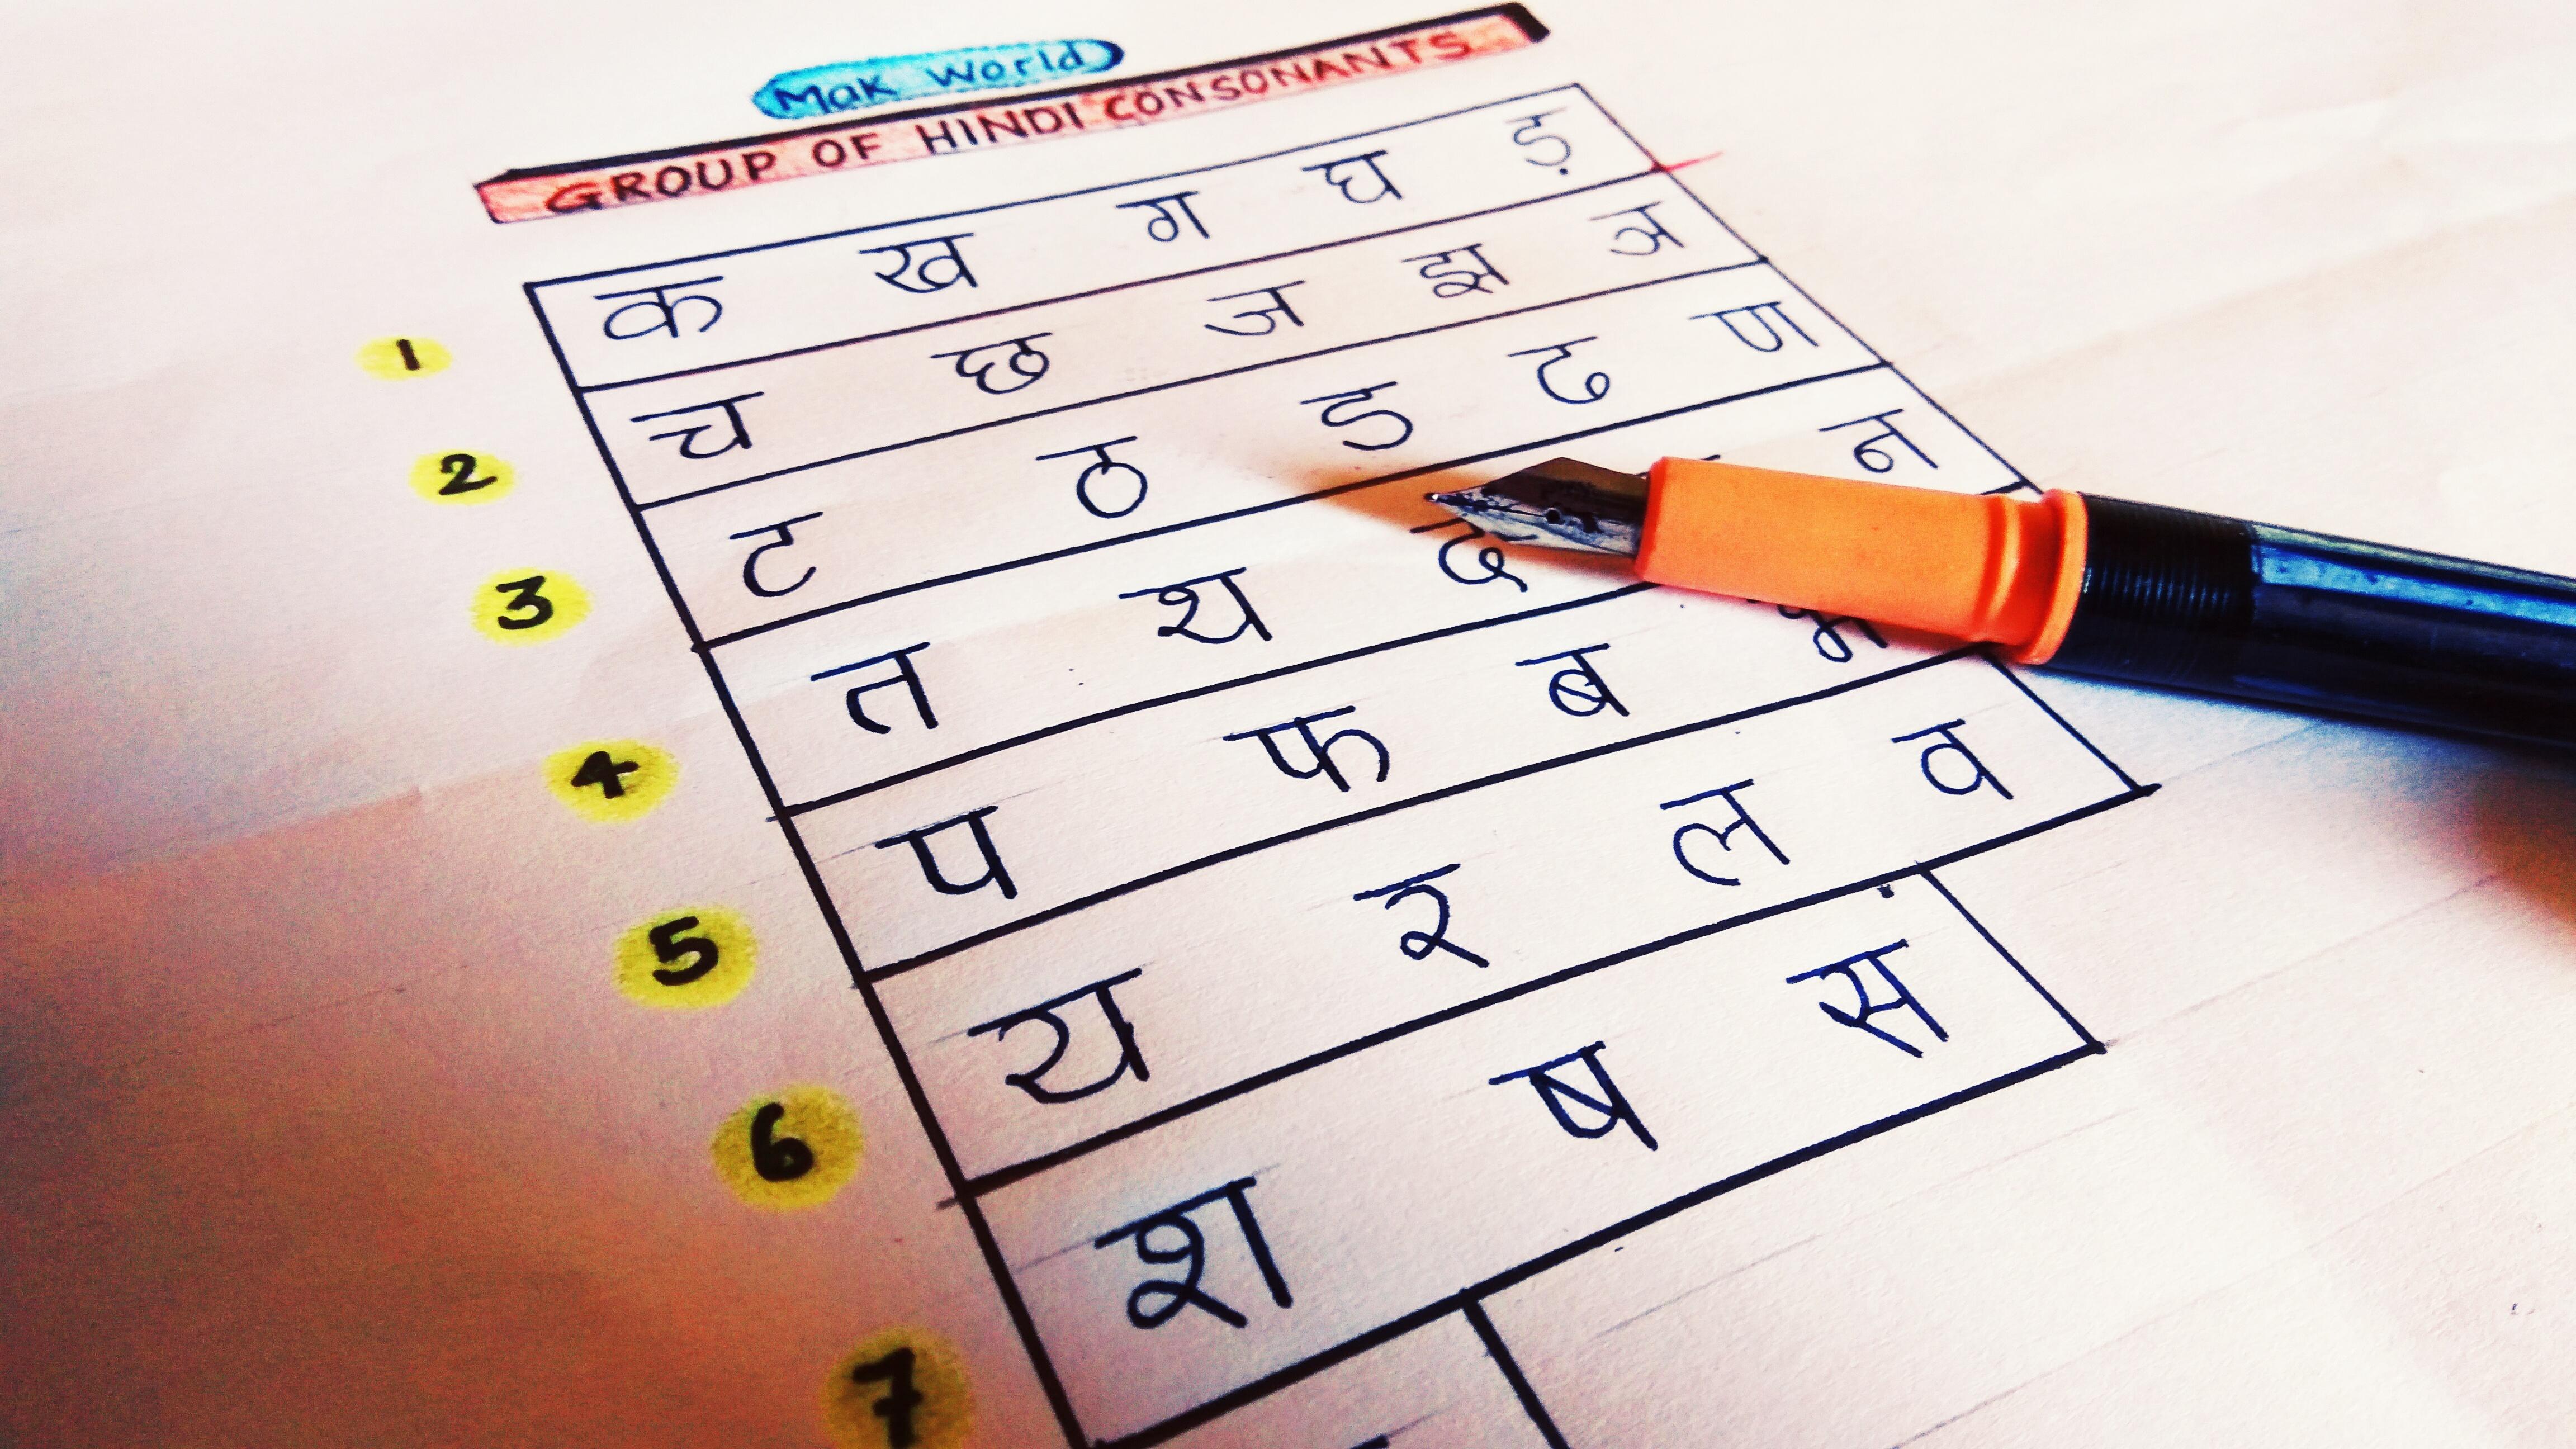 Mak World
GROUP OF HINDI CONSONANTS
1 क ख ग घ ड़
2 च छ ज झ ञ
3 ट ठ ड ढ ण
4 त थ द न
5 प फ ब
6 य र ल व
7 श ष स